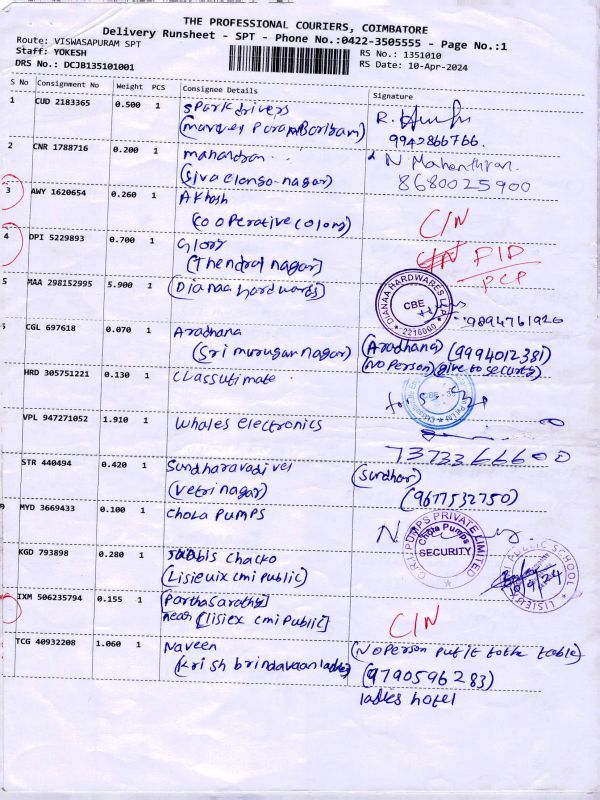 THE PROFESSIONAL COURIERS, COIMBATORE
Delivery Runsheet - SPT - Phone No.:0422-3505555 - Page No.:1
Route: VISWASAPURAM SPT
Staff: YOKESH
DRS No.: DCJB135101001
RS No.: 1351010
RS Date: 10-Apr-2024
S No Consignment No Weight PCS Consignee Details Signature
1 CUD 2183365 0.500 1 Spark drivers
R.
9942866766.
2 CNR 1788716 0.200 1 mahandran
(Siva elango-nagar)
N Mahenthran.
8680025900
3 AWY 1620654 0.260 1 Akhash
(co operative colony)
C/N
4 DPI 5229893 0.700 1 Glory
(Thendral nagar)
C/N PID
PCP
5 MAA 298152995 5.900 1 (Dianaa hardwares)
DIANAA HARDWARES
CBE
2216000
9894761920
CGL 697618 0.070 1 Aradhana
(Sri murugan nagar)
(Aradhana) (9994012381)
(NO person) (give to security)
HRD 305751221 0.130 1 Classutimate
VPL 947271052 1.910 1 Whales electronics
7373366600
STR 440494 0.420 1 Sundharavadivel
(vetri nagar)
(Sundhar)
(9677532750)
9 MYD 3669433 0.100 1 Chola PUMPS
N.
PUMPS PRIVATE LIMITED
Chola Pumps
SECURITY
KGD 793898 0.280 1 Chacko
(Lisieuix cmi public)
PUBLIC SCHOOL
LISIEUX
10/4/24
IXM 506235794 0.155 1 (Parthasarathy)
near (lisiex cmi public)
C/N
TCG 40932208 1.060 1 Naveen
(Krish brindavaan ladies)
(NO person put it to the table)
(9790596283)
ladies hotel